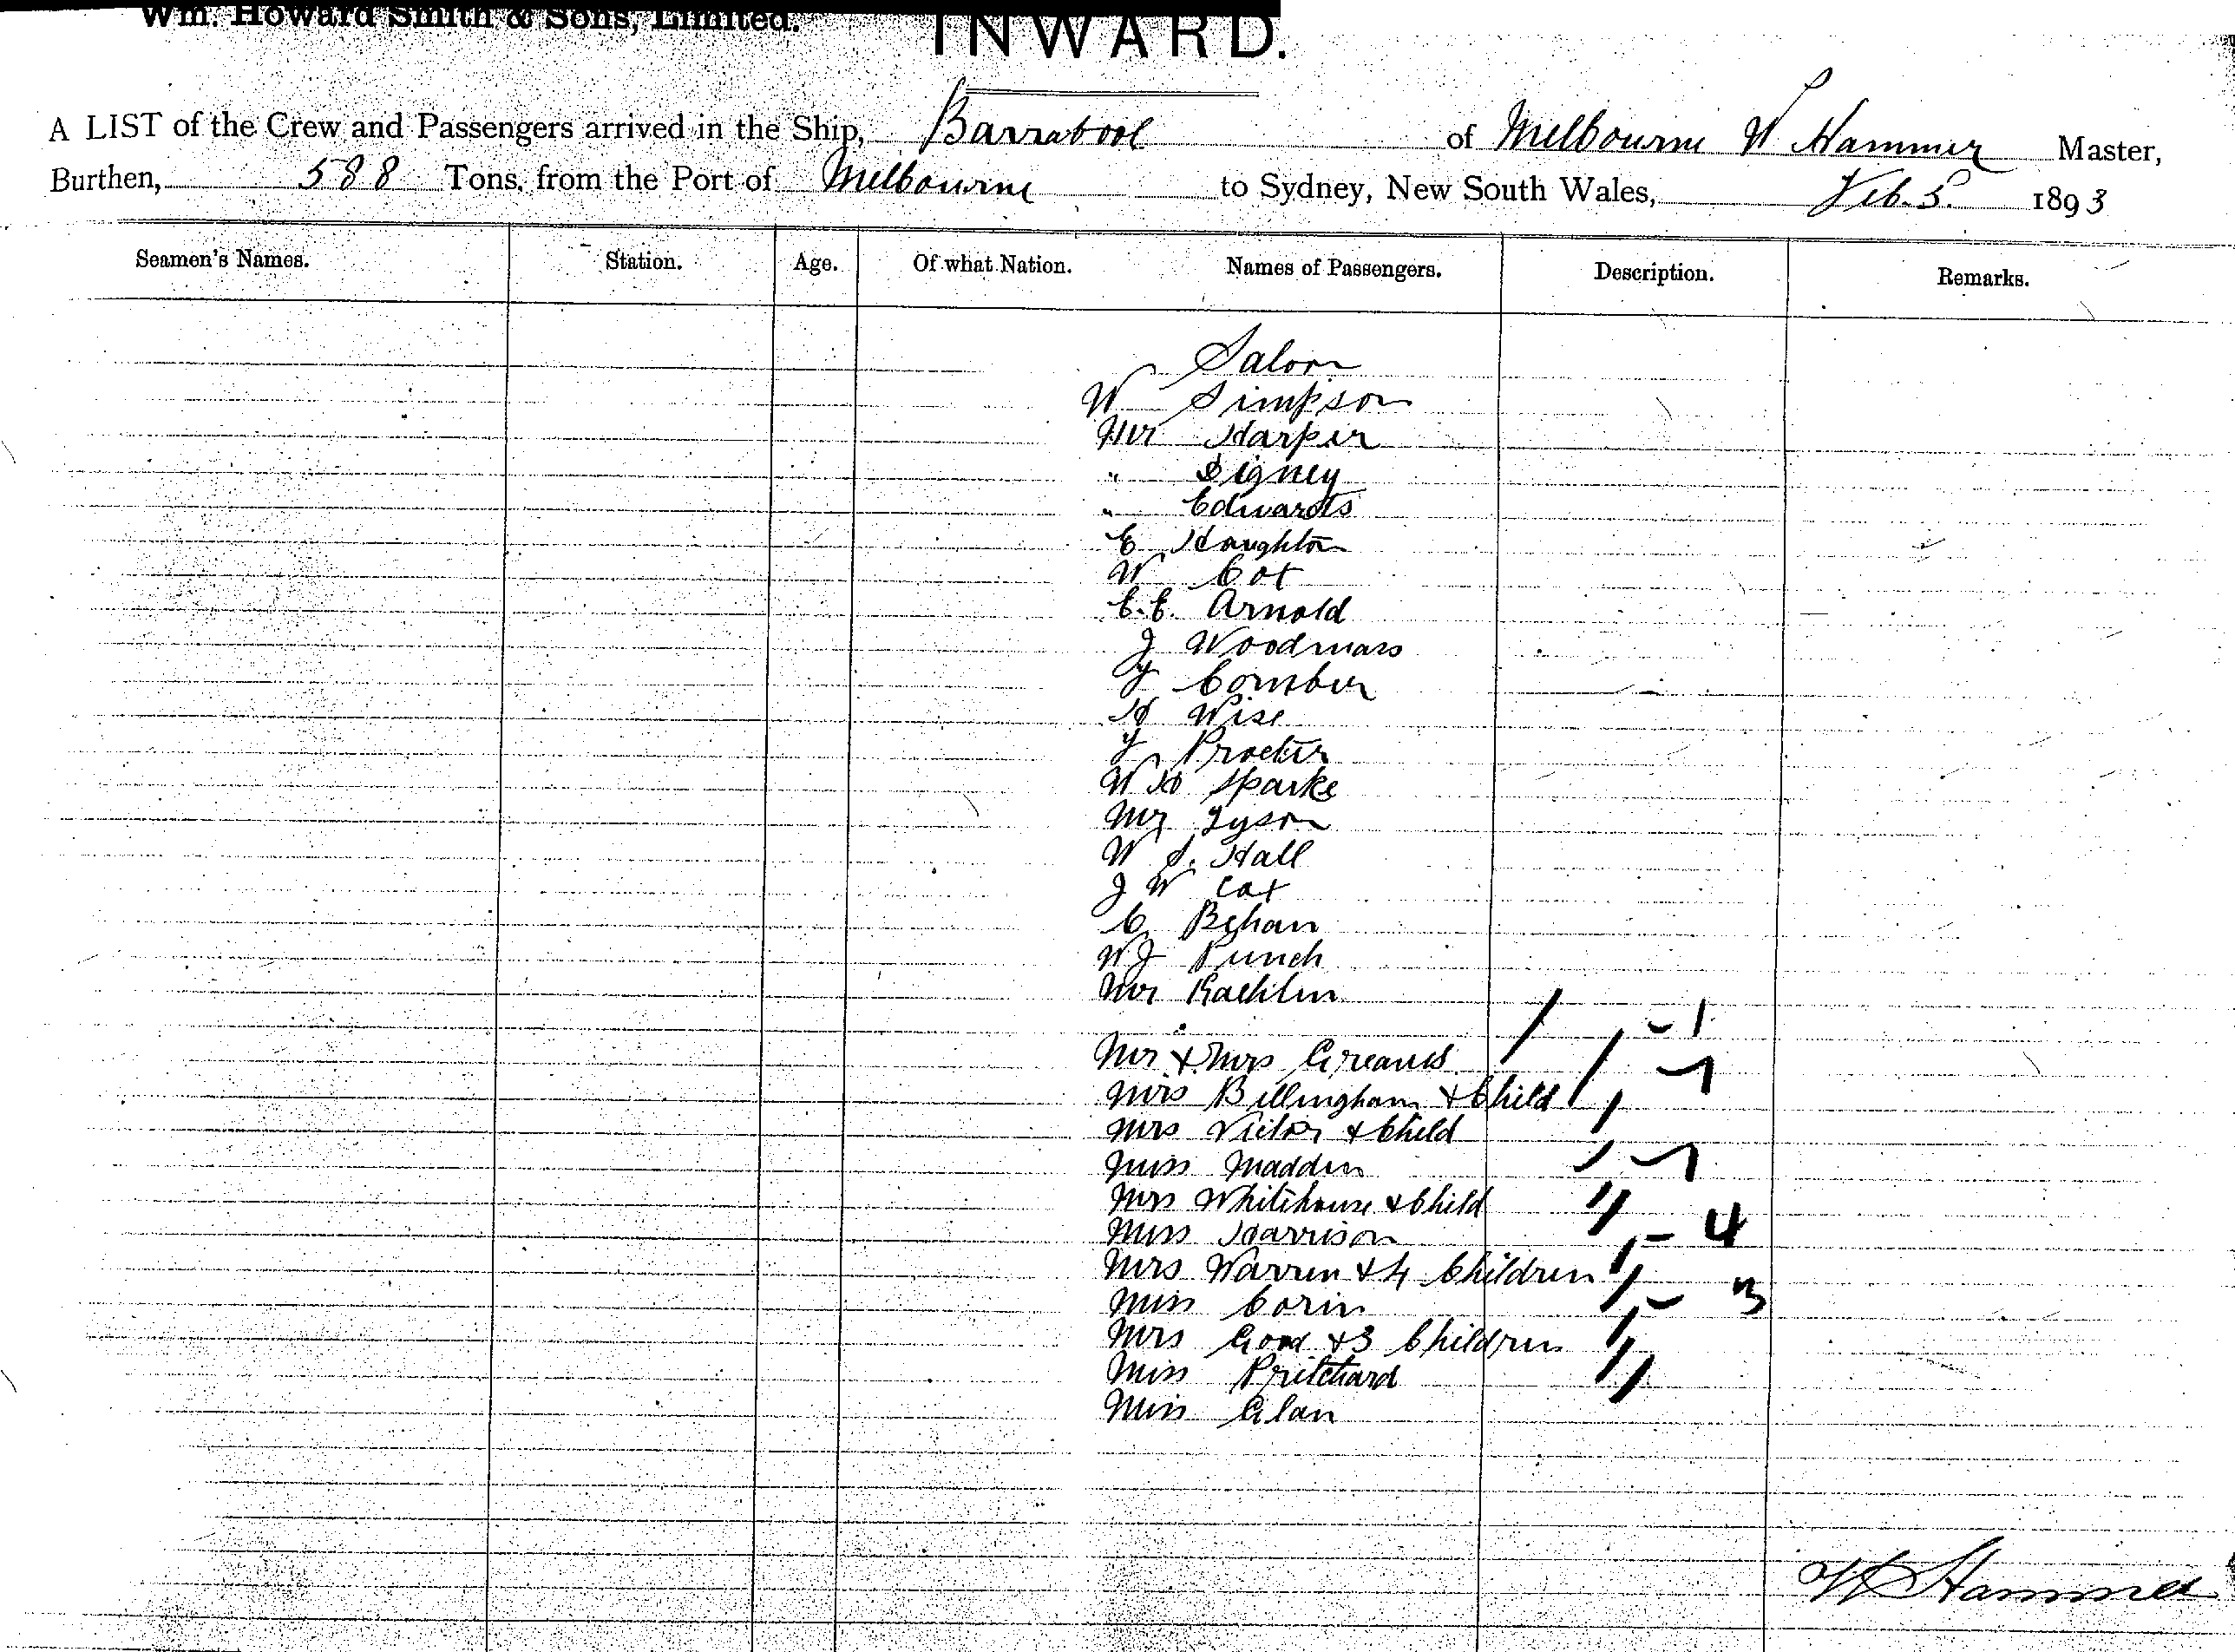 Wm. Howard Smith & Sons, Limited.
INWARD.
A LIST of the Crew and Passengers arrived in the Ship, Barrabool of Melbourne W Hammer Master,
Burthen, 588 Tons, from the Port of Melbourne to Sydney, New South Wales, Feb. 5. 1893
Seamen's Names. Station. Age. Of what Nation. Names of Passengers. Description. Remarks.
Saloon
W Simpson
Mr Harper
" Signey
" Edwards
E Haughton
W Cox
C.C. Arnold
J Woodmass
J Comber
H Wise
J Procter
W H Sparke
Mr Tyson
W S. Hall
J W Cox
C Behan
W J Punch
Mr
Mr & Mrs Greaves
Mrs Billingham & Child
Mrs Victor & Child
Miss Madden
Mrs Whitehouse & Child
Miss Harrison
Mrs Warren & 4 Children
Miss Corin
Mrs Good & 3 Children
Miss Pritchard
Miss Alan
- 1
- 1
- 1
- 4
- 3
W Hammer